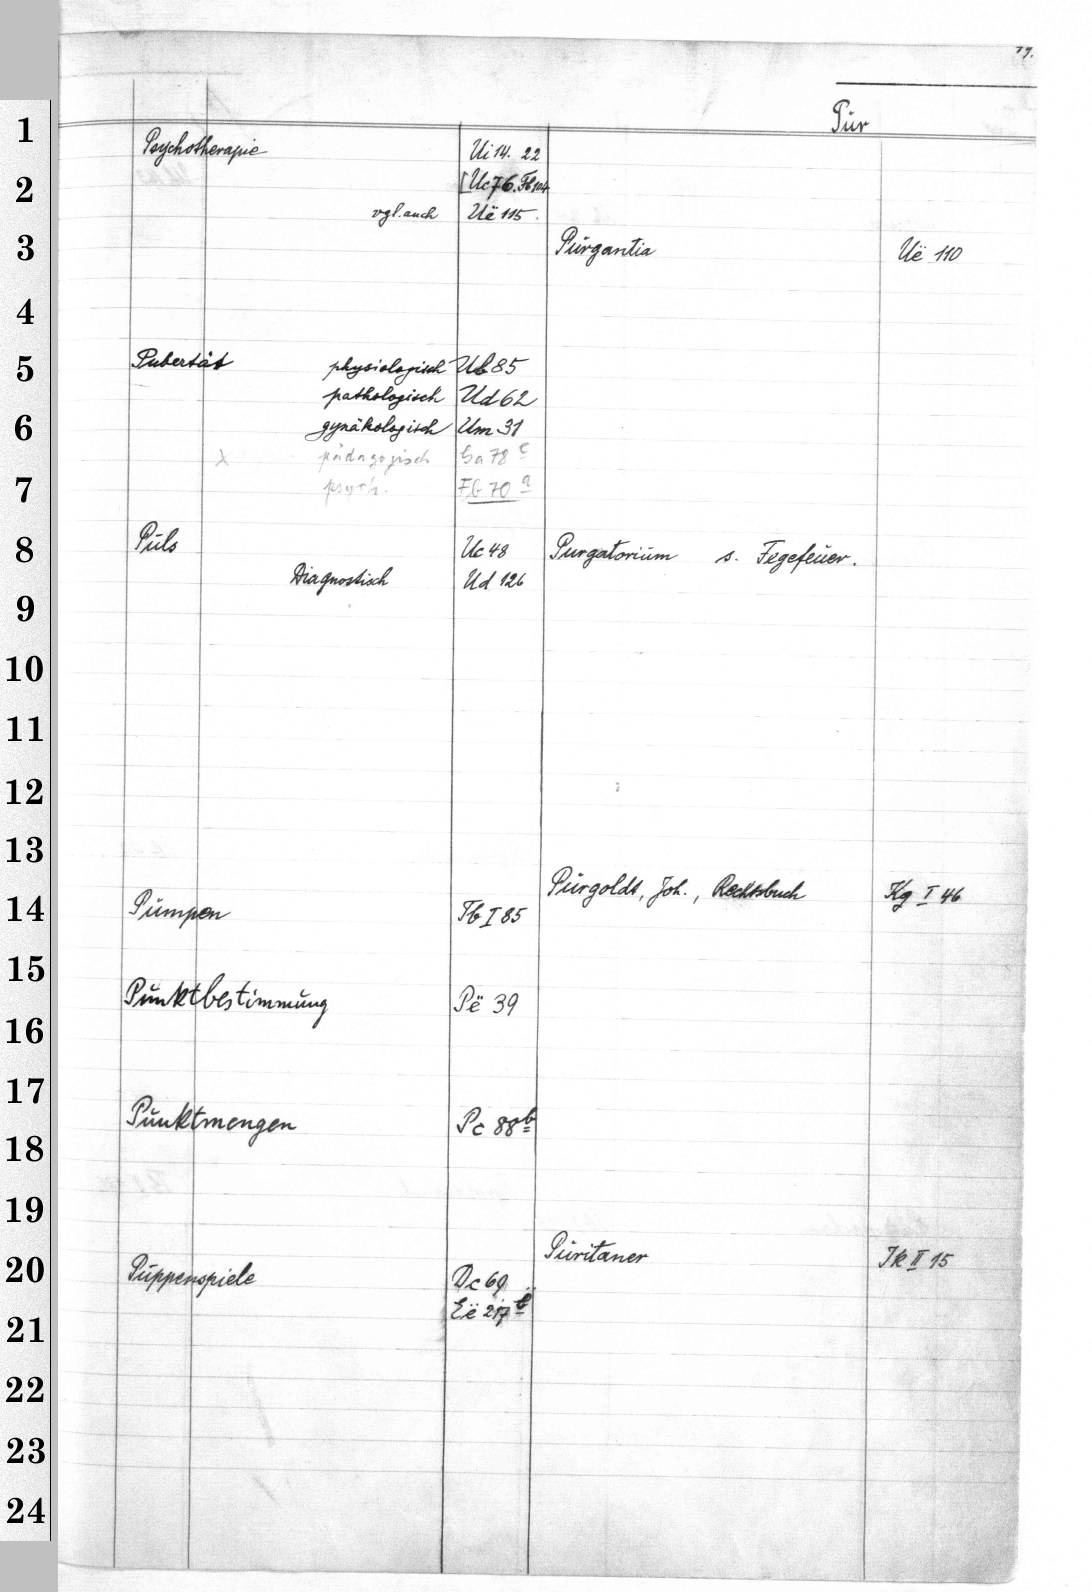 79.
Pur
1
2
3
4
5
6
7
8
9
10
11
12
13
14
15
16
17
18
19
20
21
22
23
24
Psychotherapie Ui 14. 22
[Uc 76. Fb 104
vgl. auch Uë 115.
Pubertät physiologisch Ub 85
pathologisch Ud 62
gynäkologisch Um 31
x pädagogisch Ga 78 c
psych. Fb 70 a
Puls Uc 48
Diagnostisch Ud 126
Pumpen Tb I 85
Punktbestimmung Pë 39
Punktmengen Pc 88 b
Puppenspiele Dc 69
Eë 217 b
Purgantia Uë 110
Purgatorium s. Fegefeuer.
Purgoldt, Joh., Rechtsbuch Kg I 46
Puritaner Ik II 15